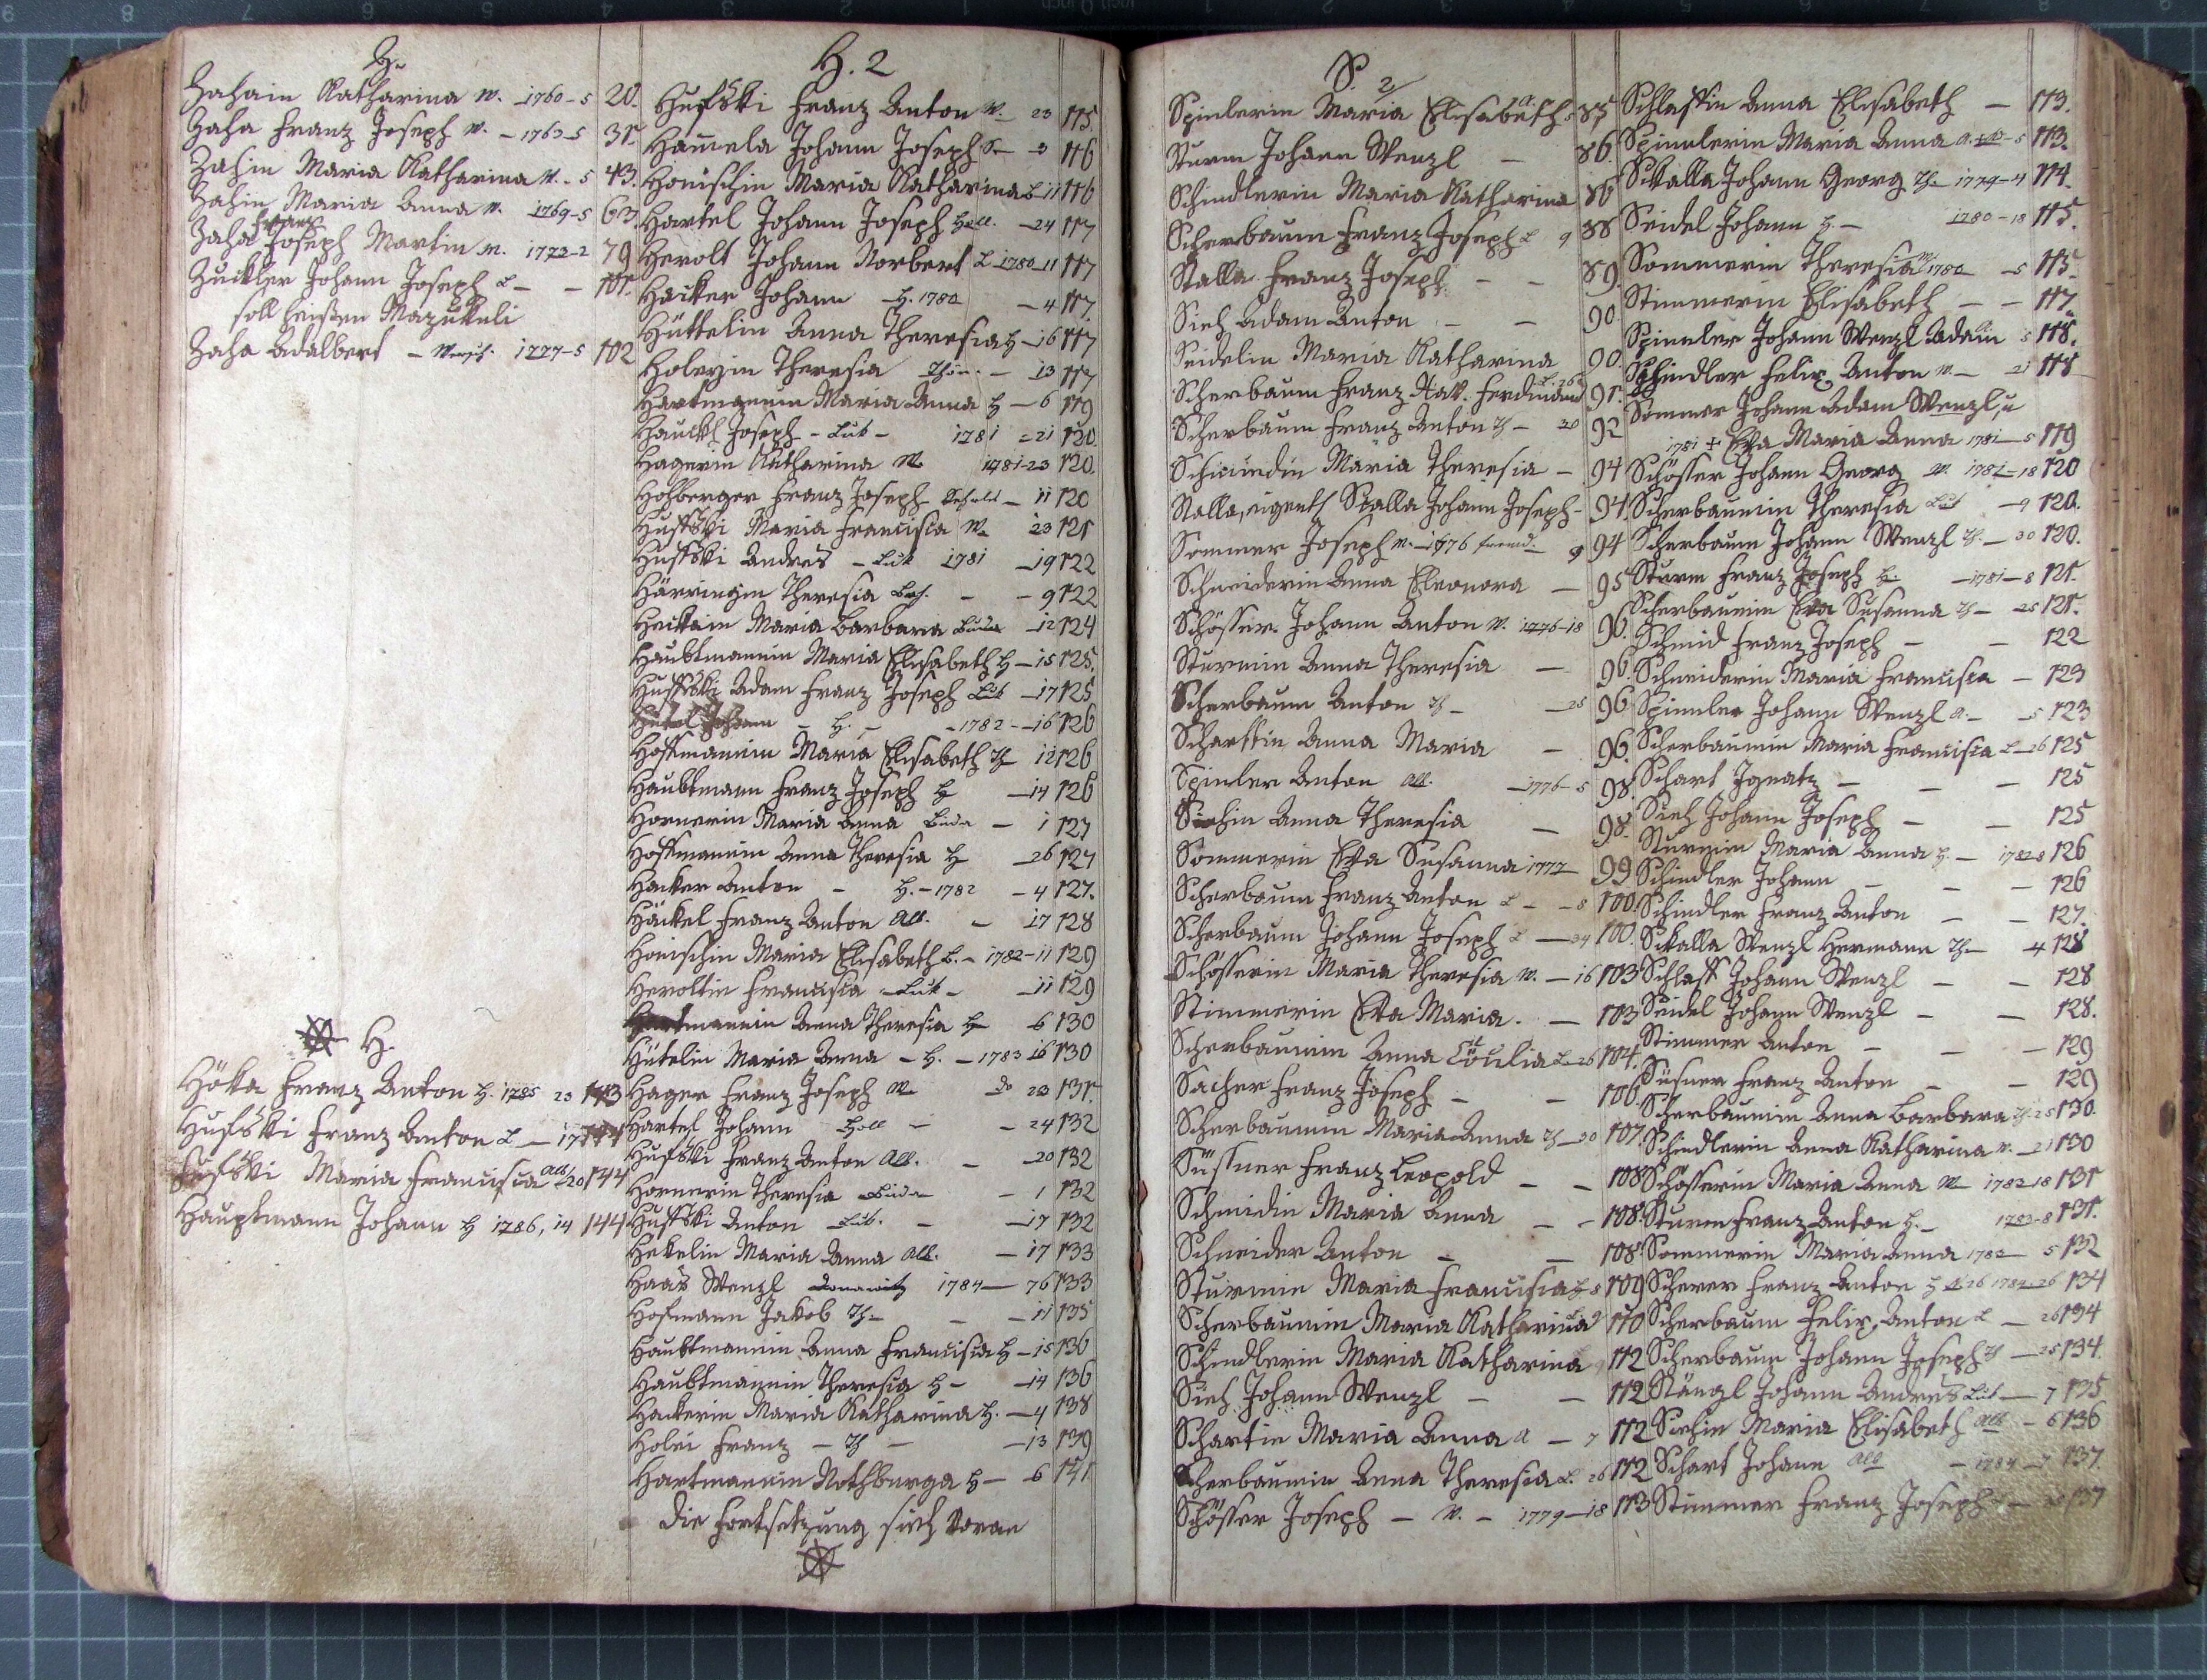 Z.
Zahain Katharina W. – 1760 – 5 20.
Zaha Franz Joseph W. – 1763 – 5 31.
Zahin Maria Katharina W. – 5 43.
Zahin Maria Anna W. 1769 – 5 63
Franz
Zaha Joseph Martin W. 1773 – 2 79
Zuckler Johann Joseph L – – 101.
soll heißen Mazukuli
Zaha Adalbert – 1777 – 5 102
H.
Höka Franz Anton H. 1785 23 143
Hufski Franz Anton L – 17 144
Hufski Maria Francisca All. 20 144
Hauptmann Johann H 1786, 14 144
H. 2
Hufski Franz Anton W. 23 115
Hamela Johann Joseph 3 116
Honischin Maria Katharina L 11 116
Hartel Johann Joseph Holl. – 24 117
Herolt Johann Norbert L 1780 – 11 117
Hacker Johann – H. 1780 – 4 117.
Hüttelin Anna Theresia H – 16 117
Holeyin Theresia – 13 117
Hartmannin Maria Anna H – 6 119
Hauckl Joseph – Lub – 1781 – 21 120
Hagerin Katharina W. 1781 – 23 120
Hohberger Franz Joseph – 11 120
Huffski Maria Francisca W. 23 121
Huffski Andres – Lub 1781 – 19 122
Härringin Theresia – – 9 122
Heickain Maria Barbara – 12 124
Haubtmannin Maria Elisabeth H – 15 125.
Huffski Adam Franz Joseph Lub – 17 125
Hütel Johann – H. – – 1782 – 16 126
Hoffmannin Maria Elisabeth Th 12 126
Haubtmann Franz Joseph H – 14 126
Hornerin Maria Anna – 1 127
Hoffmannin Anna Theresia H – 26 127
Hacker Anton – H. – 1782 – 4 127.
Häckel Franz Anton All. – 17 128
Honischin Maria Elisabeth L. – 1782 – 11 129
Heroltin Francisca – Lub – – 11 129
Hartmannin Anna Theresia H – 6 130
Hütelin Maria Anna – H. – 1783 16 130
Hager Franz Joseph W. do 23 131.
Hartel Johann Holl – – 24 132
Hufski Franz Anton All. – – 20 132
Hornerin Theresia – 1 132
Huffski Anton Lub. – – 17 132
Hekelin Maria Anna All. – 17 133
Haas Wenzl Donawitz 1784 – 76 133
Hofmann Jakob Th – – 11 135
Haubtmannin Anna Francisca H – 15 136
Haubtmannin Theresia H – – 14 136
Hackerin Maria Katharina H. – 4 138
Holei Franz – Th – – 13 139
Hartmannin Nothburga H – 6 141
die Fortsetzung sieh voran
S. 2
Spinlerin Maria Elisabeth A. 5 85
Sturm Johann Wenzl – 86.
Schindlerin Maria Katharina 86
Scherbaum Franz Joseph L 9 88
Skalla Franz Joseph – – 89.
Sieh Adam Anton – – 90
Seidelin Maria Katharina 90.
Scherbaum Franz Xav. Ferdinand L. 26 91.
Scherbaum Franz Anton Th – 30 92
Schmidin Maria Theresia – 94
Stalla, eigentl Skalla Johann Joseph – 94.
Sommer Joseph W. – 1776 9 94
Schneiderin Anna Eleonora – 95
Schösser Johann Anton W. 1776 – 18 96.
Sturmin Anna Theresia – 96.
Scherbaum Anton Th – – 25 96
Schartin Anna Maria – 96.
Spinler Anton All. – 1776 – 5 98.
Siehin Anna Theresia – 98.
Sommerin Eva Susanna 1777 – 99
Scherbaum Franz Anton L – – 8 100.
Scherbaum Johann Joseph L – 34 100.
Schösserin Maria Theresia W. – 16 103
Stimmerin Eva Maria. – 103
Scherbaumin Anna Cöcilia L – 26 104.
Sacher Franz Joseph – – 106.
Scherbaumin Maria Anna Th – 30 107.
Süssner Franz Leopold – – 108
Schmidin Maria Anna – – 108.
Schneider Anton – – 108.
Sturmin Maria Francisca H 8 109
Scherbaumin Maria Katharina L 9 110
Schindlerin Maria Katharina 112
Sieh Johann Wenzl – – 112
Schartin Maria Anna A – 7 112
Scherbaumin Anna Theresia L. 26 112
Schösser Joseph – W. – 1779 – 18 113
Schlaffin Anna Elisabeth – 113.
Spinnlerin Maria Anna A. – 5 113.
Skalla Johann Georg Th – 1779 – 4 114.
Seidel Johann H. – 1780 – 18 115.
Sommerin Theresia W. 1780 – 5 115.
Stimmerin Elisabeth – – 117.
Spinnler Johann Wenzl Adam A. 5 118.
Schindler Felix Anton W. – 21 118
Sommer Johann Adam Wenzl, u
1781 + Eva Maria Anna 1781 – 5 119
Schösser Johann Georg W. 1781 – 18 120
Scherbaumin Theresia Lub – 9 120.
Scherbaum Johann Wenzl Th – 30 120.
Sturm Franz Joseph H. – 1781 – 8 121.
Scherbaumin Eva Susanna Th – 25 121.
Schmid Franz Joseph – – 122
Schneiderin Maria Francisca – 123
Spinnler Johann Wenzl A. – 5 123
Scherbaumin Maria Francisca L – 26 125
Schart Ignatz – – – 125
Sieh Johann Joseph – – 125
Sturmin Maria Anna H. – 1782 8 126
Schindler Johann – – – 126
Schindler Franz Anton – – 127.
Skalla Wenzl Hermann Th – 4 128
Schlaff Johann Wenzl – – 128
Seidel Johann Wenzl – – 128.
Stimmer Anton – – – 129
Süsner Franz Anton – – 129
Scherbaumin Anna Barbara Th 25 130.
Schindlerin Anna Katharina W. – 21 130
Schösserin Maria Anna W – 1783 18 131
Sturm Franz Anton H. – 1783 – 8 131.
Sommerin Maria Anna 1783 – 5 132
Scherer Franz Anton H 26 134
Scherbaum Felix Anton L – 26 134
Scherbaum Johann Joseph Th – 25 134.
Stängl Johann Andres Lub – 7 135
Siehin Maria Elisabeth All – 6 136
Schart Johann All – 1784 – 7 137.
Stimmer Franz Joseph